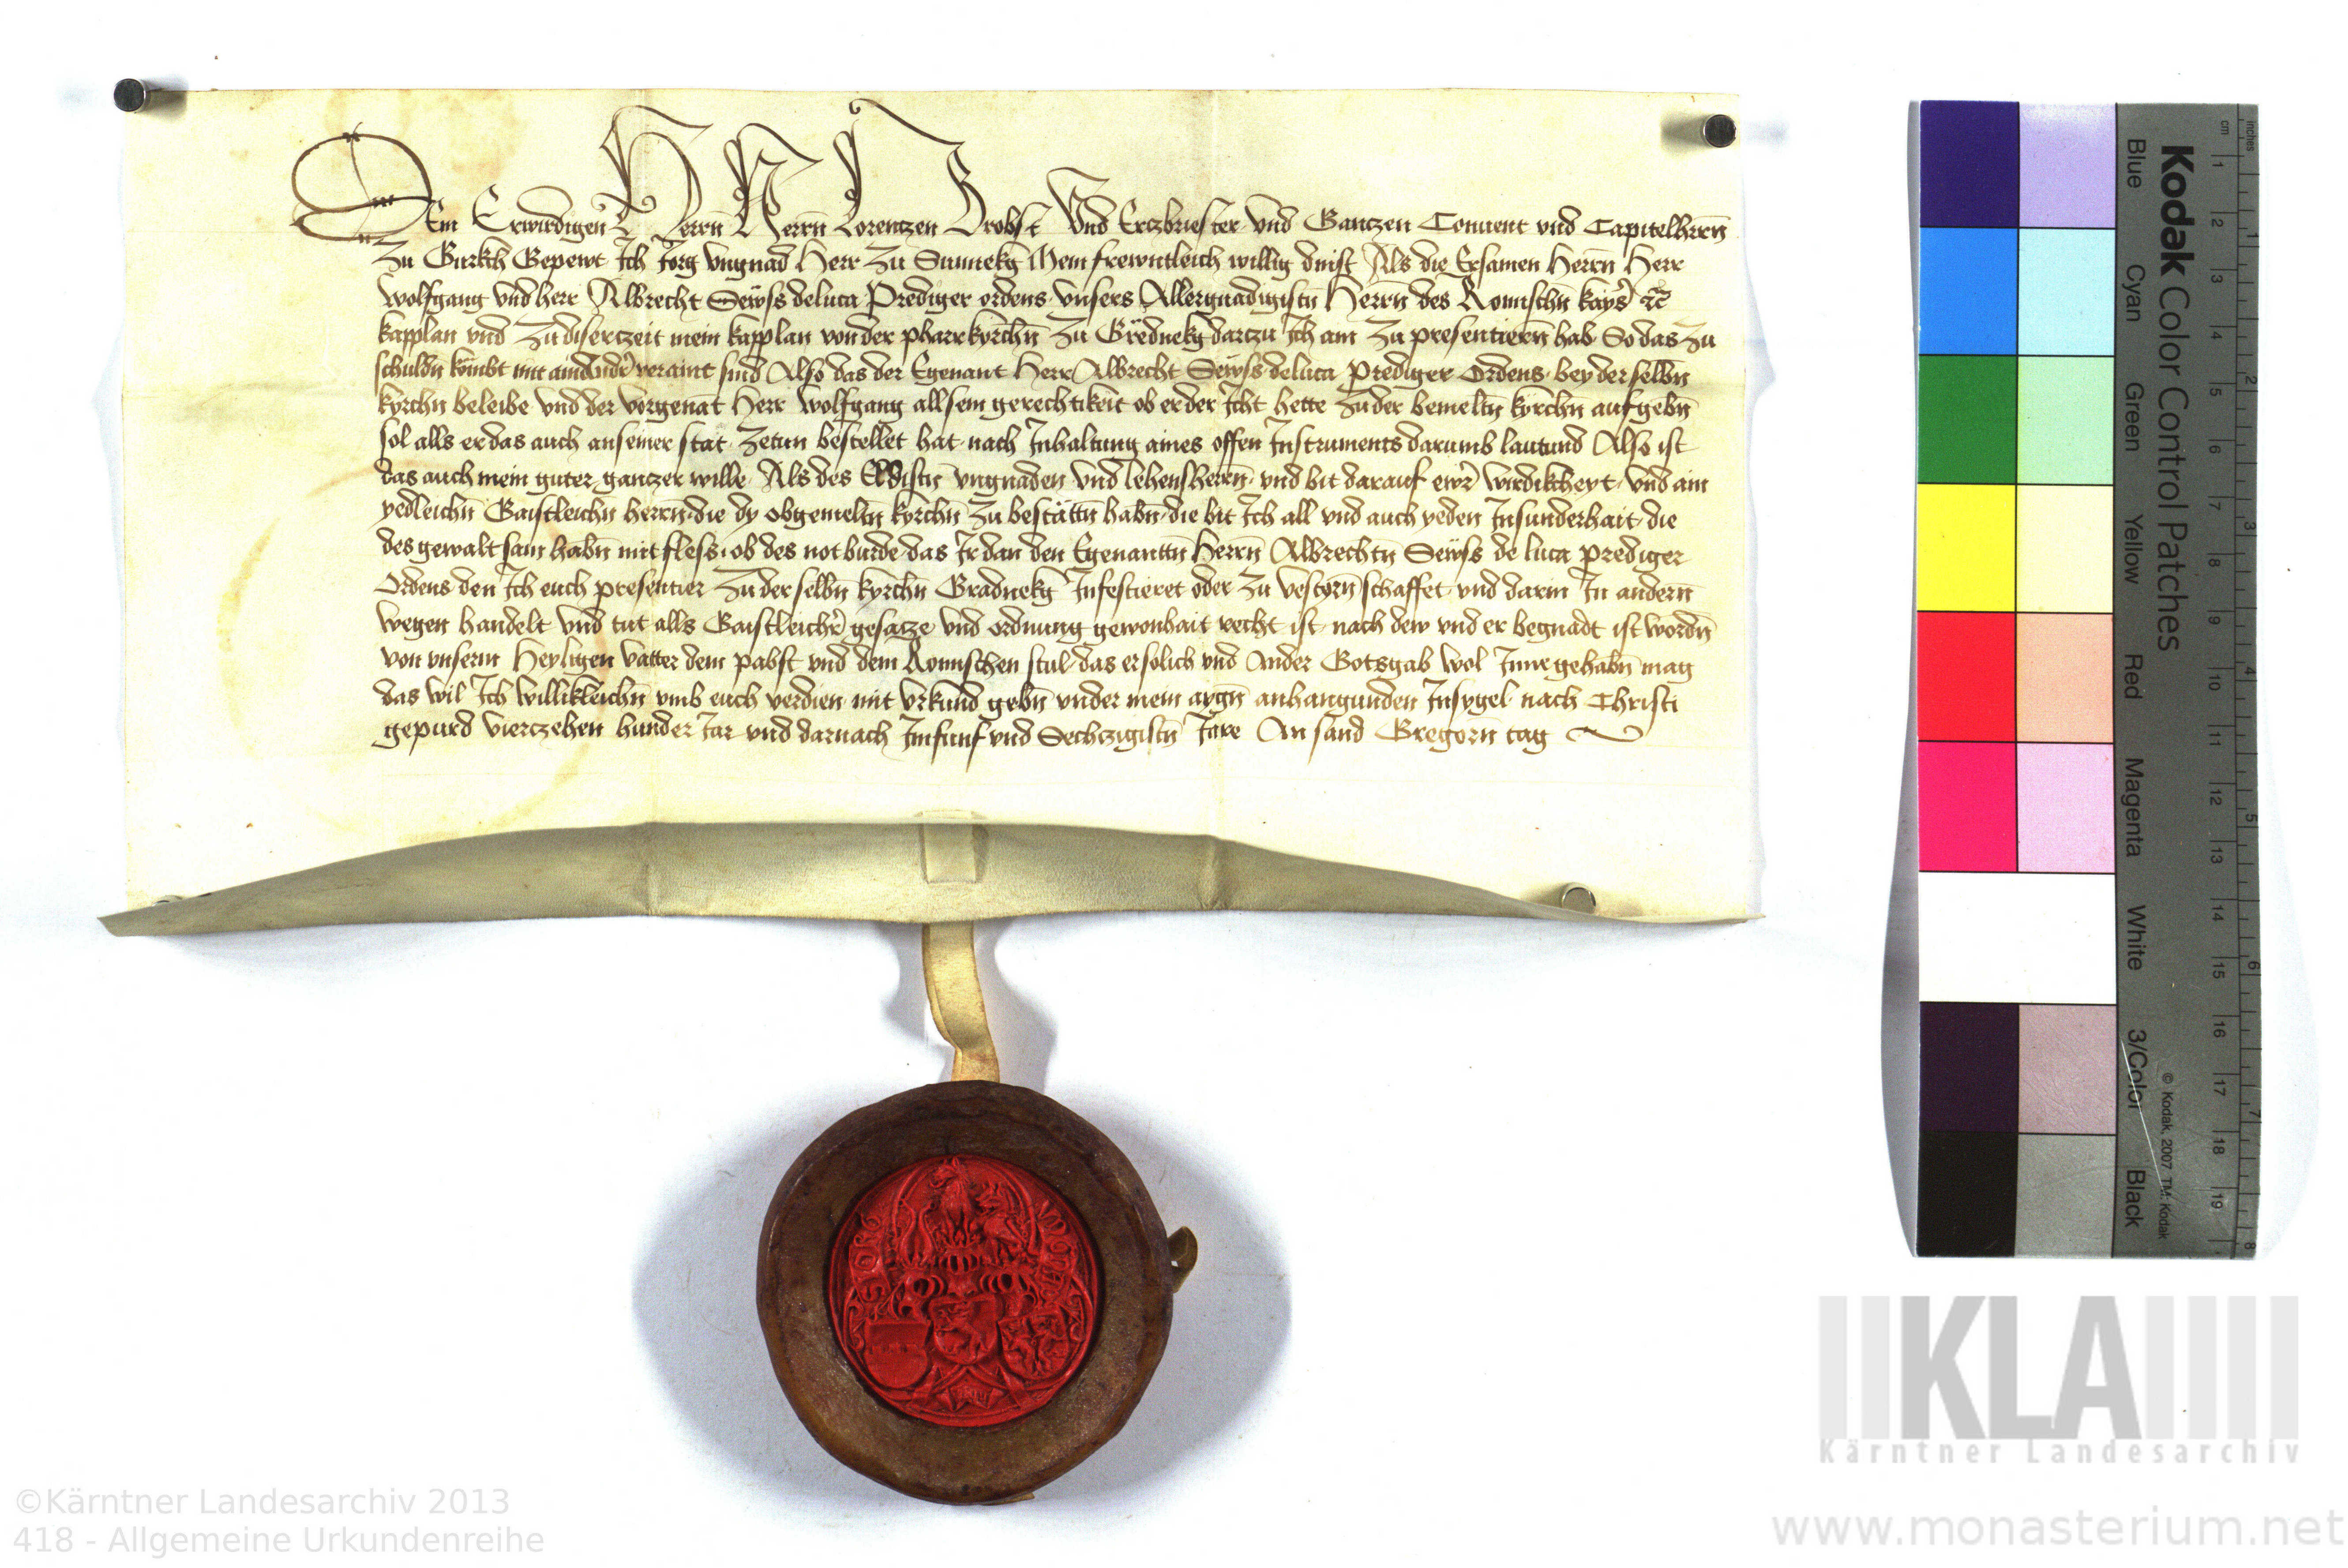 Dem Erwirdigen Herrn Herrn Lorentzen Brobst Vnd Erczbriester vnd Ganczen Conuent vnd Capitelhrrn̄
Zu Gurkch Gepewt Ich Jorg vngnad Herr Zu Sunnekg Mein frewntleich willig dinst Als die Ersamen Herrn̄ Herr
wolfgang vnd herr Albrecht Sewss deluca Prediger ordens vnsers Allergnadigistn̄ Herrn̄ des Romischn̄ kays̄ ꝛc̄
kapplan vnd Zu diserczeit mein kapplan von der pharrkyrchn̄ Zu Grednekg darczu Ich ain Zu presentiern̄ hab So das Zu
schuldn̄ kumbt mit veraint sind Also das der Egenant Herr Albrecht Sewss deluca Prediger Ordens bey der selbn̄
kyrchn̄ beleibe vnd der vorgenāt Herr wolfgang all sein gerechtikeit ob er der Icht hette Zu der bemeltn̄ kyrchn̄ aufgebn̄
sol alls er das auch an seiner stat Zetun bestellet hat nach Inhaltung aines offen Instruments darumb lautund Also ist
das auch mein guter ganczer wille Als des Eldistn̄ vngnaden vnd lehensherrn̄ vnd bit darauf ewr̄ wirdikcheyt vnd ain
yedleichn̄ Gaistleichn̄ herrn̄ die dy obgemeltn̄ kyrchn̄ Zu bestättn̄ habn̄ die bit Ich all vnd auch yeden Insunderhait die
des gewaltsam habn̄ mit fless ob des not burde das Ir dan den Egenanttn̄ Herrn̄ Albrechtn̄ Sewss de luca prediger
Ordens den Ich euch presentier Zu der selbn̄ kyrchn̄ Gradnekg Infestieret oder Zu vestorn̄ schaffet vnd darin In andern̄
wegen handelt vnd tut alls Gaistleichr̄ gesacze vnd ordnung gewonhait recht ist nach dem vnd er begnadt ist wordn̄
von vnserm Heyligen vatter dem pabst vnd dem Romischen stul das er solich vnd Ander Gotsgab wol Inne gehabn̄ mag
das wil Ich willikleichn̄ vmb euch verdien mit vrkund gebn̄ vnder mein aygn̄ anhangunden Insygel nach Christi
gepurd vierczehen hunder Jar vnd darnach Im funf vnd Sechczigistn̄ Jare An sand Gregorn̄ tag
Kodak Color Control Patches
Blue Cyan Green Yellow Red Magenta White 3/Color Black
© Kodak, 2007 TM: Kodak
cm 1 2 3 4 5 6 7 8 9 10 11 12 13 14 15 16 17 18 19
inches 1 2 3 4 5 6 7 8
KLA
Kärntner Landesarchiv
©Kärntner Landesarchiv 2013
418 - Allgemeine Urkundenreihe
www.monasterium.net